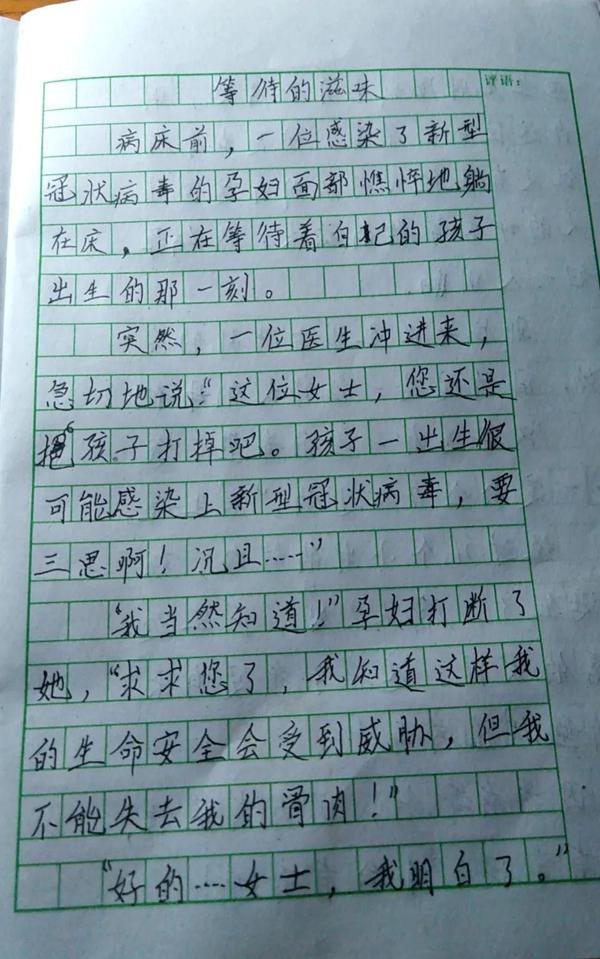 等待的滋味
评语：
病床前，一位感染了新型
冠状病毒的孕妇面部憔悴地躺
在床，正在等待着自杞的孩子
出生的那一刻。
突然，一位医生冲进来，
急切地说：“这位女士，您还是
把孩子打掉吧。孩子一出生很
可能感染上新型冠状病毒，要
三思啊！况且……”
“我当然知道！”孕妇打断了
她，“求求您了，我知道这样我
的生命安全会受到威胁，但我
不能失去我的骨肉！”
“好的……女士，我明白了。”